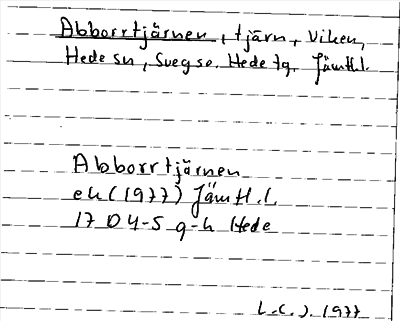 Abborrtjärnen, tjärn, Viken,
Hede sn, Sveg so. Hede tg. Jämtl.l.
Abborrtjärnen
ek (1977) Jämtl.l.
17 D 4-5 g-h Hede
L.C.J. 1977